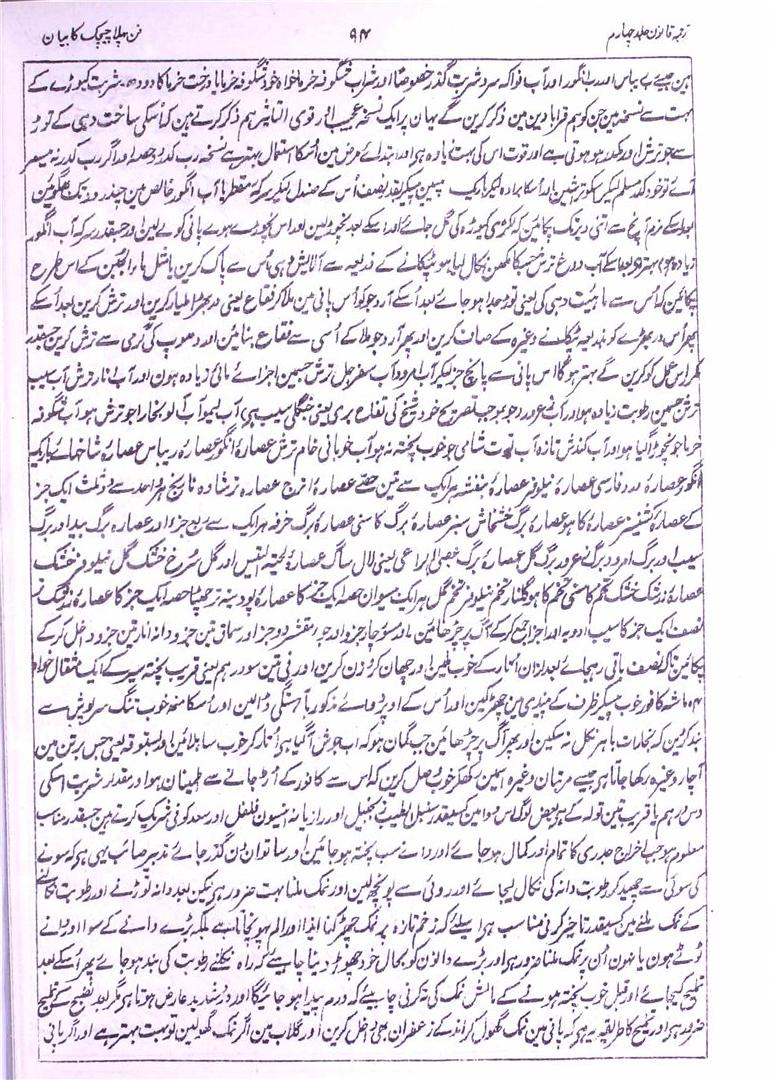 ترجمہ قانون جلد چہارم ۹۴ فن پہلا چیچک کا بیان
ہین جیسے رب ریباس اور رب انگور اور آب فواکہ سرد شربت گذر خصوصًا اور شراب شگوفہ خرما خواہ خود شگوفہ خرما یا درخت خرما کا دودھ شربت کیوڑے کے
بہت سے نسخہ ہین جن کو ہم قرابادین مین ذکر کرین گے یہان پر ایک نسخہ عجیب اور قوی التاثیر ہم ذکر کرتے ہین کہ اسکی ساخت دہی کے توڑ
سے جو ترش اور مکدر ہو ہوتی ہے اور قوت اس کی بہت زیادہ ہے اور ابتداے مرض مین اسکا استعمال بہتر ہے نسخہ رب کدر حصہ اور اگر رب کدر نہ میسر
آئے تو خود کدر سلم لیکر
بعد اسکے نرم آنچ سے اتنی دیر تک پکائین کہ لکڑی کیوڑہ کی گل جائے اور اسکے بعد نچوڑ لین اور اس نچوڑے ہوے پانی کو لے لین اور جسقدر سرکہ آب انگور
زیادہ ہو بہتر ہو بعد اسکے آب دوغ ترش جسکا مکھن نکال لیا ہو ٹپکانے کے ذریعہ سے آلایش دہی اس سے پاک کرین مثل ماء الجبن کے اس طرح
پکائین کہ اس سے ماہیت دہی کی یعنی توڑ جدا ہو جائے بعد اسکے آرد جو کو اس پانی مین ملا کر فقاع یعنی دربھرا طیار کرین اور ترش کرین بعد اسکے
پھر اس دربھرے کو بذریعہ ٹپکانے وغیرہ کے صاف کرین اور پھر آرد جو ملا کے اسی سے فقاع بنائین اور دھوپ کی گرمی سے ترش کرین جسقدر
مکرر اس عمل کو کرین گے بہتر ہو گا اس پانی سے پانچ جز لیکر آب امرود آب سفرجل ترش جسمین اجزاے مائی زیادہ ہون اور آب انار ترش آب سیب
ترش جسمین رطوبت زیادہ ہو اور آب زعرور جو بموجب تصریح خود شیخ کی تفاح بری یعنی جنگلی سیب ہی آب لیمو آب آلو بخارا جو ترش ہو آب شگوفہ
خرما جو نچوڑا گیا ہو اور آب کندش تازہ آب توت شامی جو خوب پختہ نہ ہو آب خوبانی خام ترش عصارۂ انگور عصارۂ ریباس عصارۂ شاخہاے باریک
انگور عصارۂ ورد فارسی عصارۂ نیلوفر عصارۂ بنفشہ ہر ایک سے تین حصے عصارۂ اترج عصارہ ترشادہ نارنج ہر واحد سے دو ثلث ایک جز
کے عصارۂ کشنیز عصارۂ کاہو عصارۂ برگ خشخاش سبز عصارۂ برگ کاسنی عصارۂ برگ خرفہ ہر ایک سے ربع جز اور عصارہ برگ بید اور برگ
سیب اور برگ امرود برگ زعرور برگ گل عصارۂ برگ عصی الراعی یعنی لال ساگ عصارۂ لحیۃ التیس اور گل سرخ خشک گل نیلوفر خشک
عصارۂ زرشک خشک تخم کاسنی تخم کاہو گلنار تخم نیلوفر تخم گل ہر ایک بیسوان حصہ ایک جز کا عصارۂ پودینہ تر چھٹا حصہ ایک جز کا عصارۂ زرشک تر
نصف ایک جز کا سب ادویہ اور اجزا جمع کر کے آگ پر چڑھائین اور مسور چار جز اور جو مقشر دو جز اور سماق تین جز و دانہ انار تین جزو داخل کر کے
پکائین تاکہ نصف باقی رہجائے بعد ازان اتار کے خوب ملین اور چھان کر وزن کرین اور فی تین سو درہم یعنی قریب پختہ سیر کے ایک مثقال خواہ
۴ ماشہ کافور خوب پیسکر ظرف کے پیندی مین چھڑکین اور اس کے اوپر دواے مذکور بآہستگی ڈالین اور اسکا منہ خوب تنگ سرپوش سے
بند کرین کہ بخارات باہر نکل نہ سکین اور پھر آگ پر چڑھائین جب گمان ہو کہ اب جوش آگیا ہی اتار کر خوب سا ہلائین اور بستوقہ یعنی جس برتن مین
آچار وغیرہ رکھا جاتا ہی جیسے مرتبان وغیرہ اسمین رکھکر خوب وصل کرین کہ اس سے کافور کے اڑ جانے سے اطمینان ہو اور مقدار شربت اسکی
دس درہم یا قریب تین تولہ کے ہی بعض لوگ اس دوا مین کسیقدر سنبل الطیب زنجبیل اور رازیانہ انیسون فلفل اور سعد کوفی شریک کرتے ہین جسقدر مناسب
معلوم ہو جب اخراج جدری کا تمام اور کمال ہو جائے اور دانے سب پختہ ہو جائین اور ساتوان دن گذر جائے تدبیر صائب یہی ہی کہ سونے
کی سوئی سے چھید کر رطوبت دانہ کی نکال لیجائے اور روئی سے پونچھ لین اور نمک ملنا بہت ضرور ہی لیکن بعد دانہ توڑنے اور رطوبت نکالنے
کے نمک ملنے مین کسیقدر تاخیر کرنی مناسب ہی اسلئے کہ زخم تازہ پر نمک چھڑکنا ایذا اور الم پہونچاتا ہے بلکہ بڑے دانے کے سوا اور دانے
ٹوٹے ہون یا نہون اُن پر نمک ملنا ضرور ہی اور بڑے دانون کو بحال خود چھوڑ دینا چاہیے کہ راہ نکلنے رطوبت کی بند ہو جائے پھر اسکے بعد
تملیح کیجائے اور قبل خوب پختہ ہونے کے مالش نمک کی نہ کرنی چاہیے کہ درم پیدا ہو جائیگا اور درد شدید عارض ہوتا ہی مگر بعد نضج کے تملیح
ضرور ہی اور تملیح کا طریقہ یہ ہی کہ پانی مین نمک گھول کر اندکے زعفران بھی داخل کرین اور گلاب مین اگر نمک گھولین تو بہت بہتر ہے اور اگر پانی